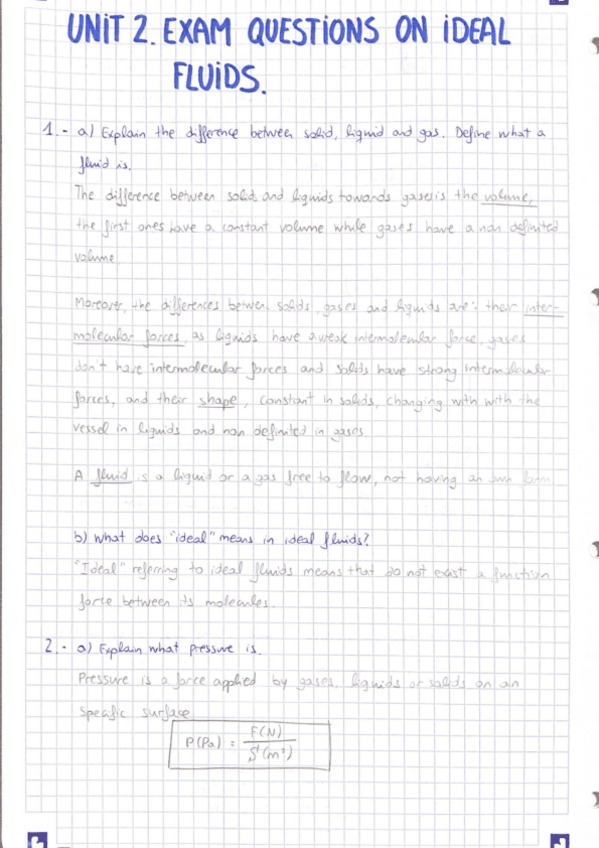 UNIT 2. EXAM QUESTIONS ON IDEAL
FLUIDS.
1.- a) Explain the difference between solid, liquid and gas. Define what a
fluid is.
The difference between solids and liquids towards gases is the volume,
the first ones have a constant volume while gases have a non definited
volume.
Moreover, the differences betwen solids, gases and liquids are: their inter-
molecular forces, as liquids have a weak intermolecular force, gases
don't have intermolecular forces and solids have strong intermolecular
forces, and their shape, constant in solids, changing with with the
vessel in liquids and non definited in gases.
A fluid is a liquid or a gas free to flow, not having an own form.
b) What does "ideal" means in ideal fluids?
"Ideal" referring to ideal fluids means that do not exist a function
force between its molecules.
2.- a) Explain what pressure is.
Pressure is a force applied by gases, liquids or solids on an
specific surface
P(Pa) = F(N) / S(m²)